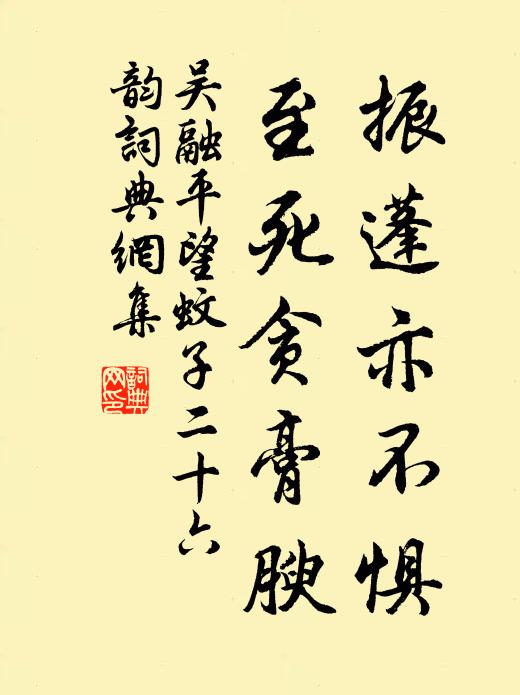 振蓬亦不惧
至死贪膏腴
吴融平望蚊子二十六
韵詞典網集
詞典
网印